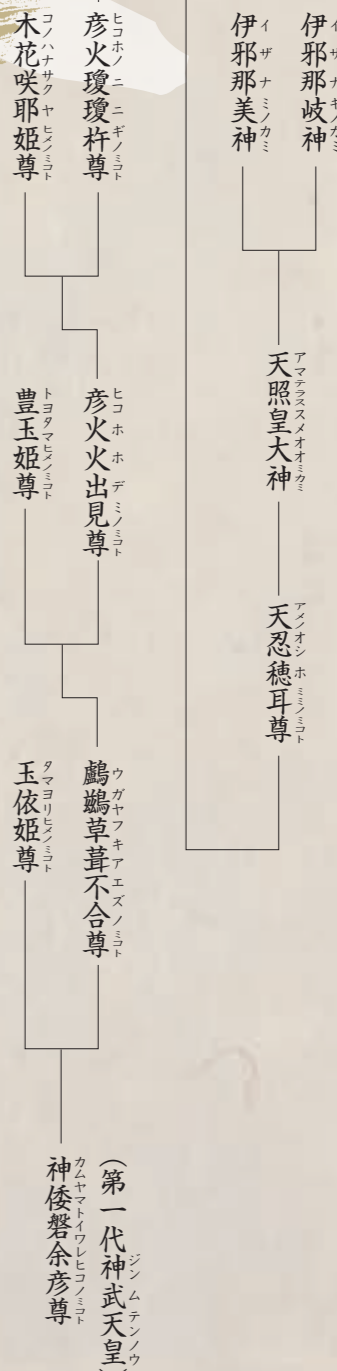 伊邪那岐神
イザナギノカミ
伊邪那美神
イザナミノカミ
天照皇大神
アマテラススメオオミカミ
天忍穂耳尊
アメノオシホミミノミコト
彦火瓊瓊杵尊
ヒコホノニニギノミコト
木花咲耶姫尊
コノハナサクヤヒメノミコト
彦火火出見尊
ヒコホホデミノミコト
豊玉姫尊
トヨタマヒメノミコト
鸕鷀草葺不合尊
ウガヤフキアエズノミコト
玉依姫尊
タマヨリヒメノミコト
(第一代神武天皇
ジンムテンノウ
神倭磐余彦尊
カムヤマトイワレヒコノミコト